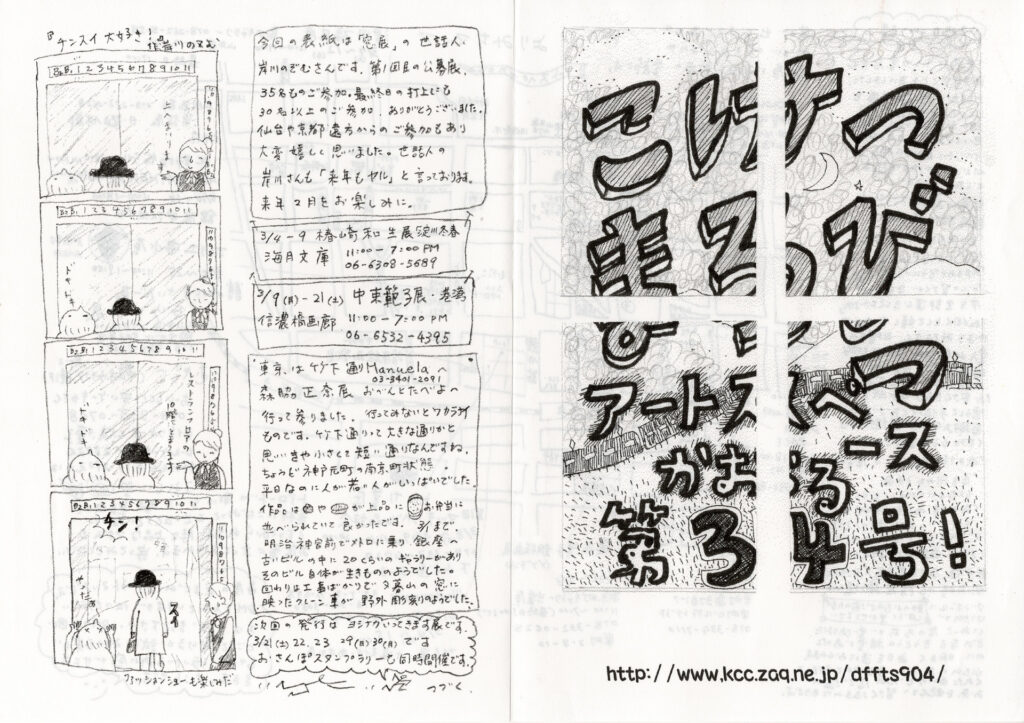 『チンスイ大好き!
作 岸川のぞむ
B2 B1 1 2 3 4 5 6 7 8 9 10 11
上へまいります
B2 B1 1 2 3 4 5 6 7 8 9 10 11
ドキドキ
B2 B1 1 2 3 4 5 6 7 8 9 10 11
レストランフロアの
10階にとまります
ドキドキ
B2 B1 1 2 3 4 5 6 7 8 9 10 11
チン!
スイ
ファッションショーも楽しみだ
今回の表紙は「窓展」の世話人、
岸川のぞむさんです。第1回目の公募展、
35名ものご参加、最終日の打上にも
30名以上のご参加 ありがとうございました。
仙台や京都遠方からのご参加もあり
大変嬉しく思いました。世話人の
岸川さんも「来年もヤル」と言っております。
来年2月をお楽しみに。
3/4-9 椿崎和生展 淀川冬春
海月文庫 11:00-7:00PM
06-6308-5689
3/9(月)-21(土) 中東範子展・港湾
信濃橋画廊 11:00-7:00PM
06-6532-4395
東京、は竹下通りManuelaへ
03-3401-2091
森脇正奈展 おべんとたべよへ
行って参りました。行ってみないとワカラナイ
ものです。竹下通りって大きな通りかと
思いきや小さくて短い通りなんですね。
ちょうど神戸元町の南京町状態。
平日なのに人が若い人がいっぱいでした。
作品は や が上品に お弁当に
並べられていて良かったです。3/1まで。
明治神宮前でメトロに乗り 銀座へ
古いビルの中に20くらいのギャラリーがあり
そのビル自体が生きもののようでした。
回わりは工事ばかりで夕暮の窓に
映ったクレーン車が 野外彫刻のようでした。
次回の発行は ヨシナガいってきます展です。
3/21(土) 22、23 29(日) 30(月) です
おさんぽスタンプラリーも同時開催です。
つづく
こけつ
まろび
まろび
つ
アートスペース
かおる
第34号!
http://www.kcc.zaq.ne.jp/dffts904/